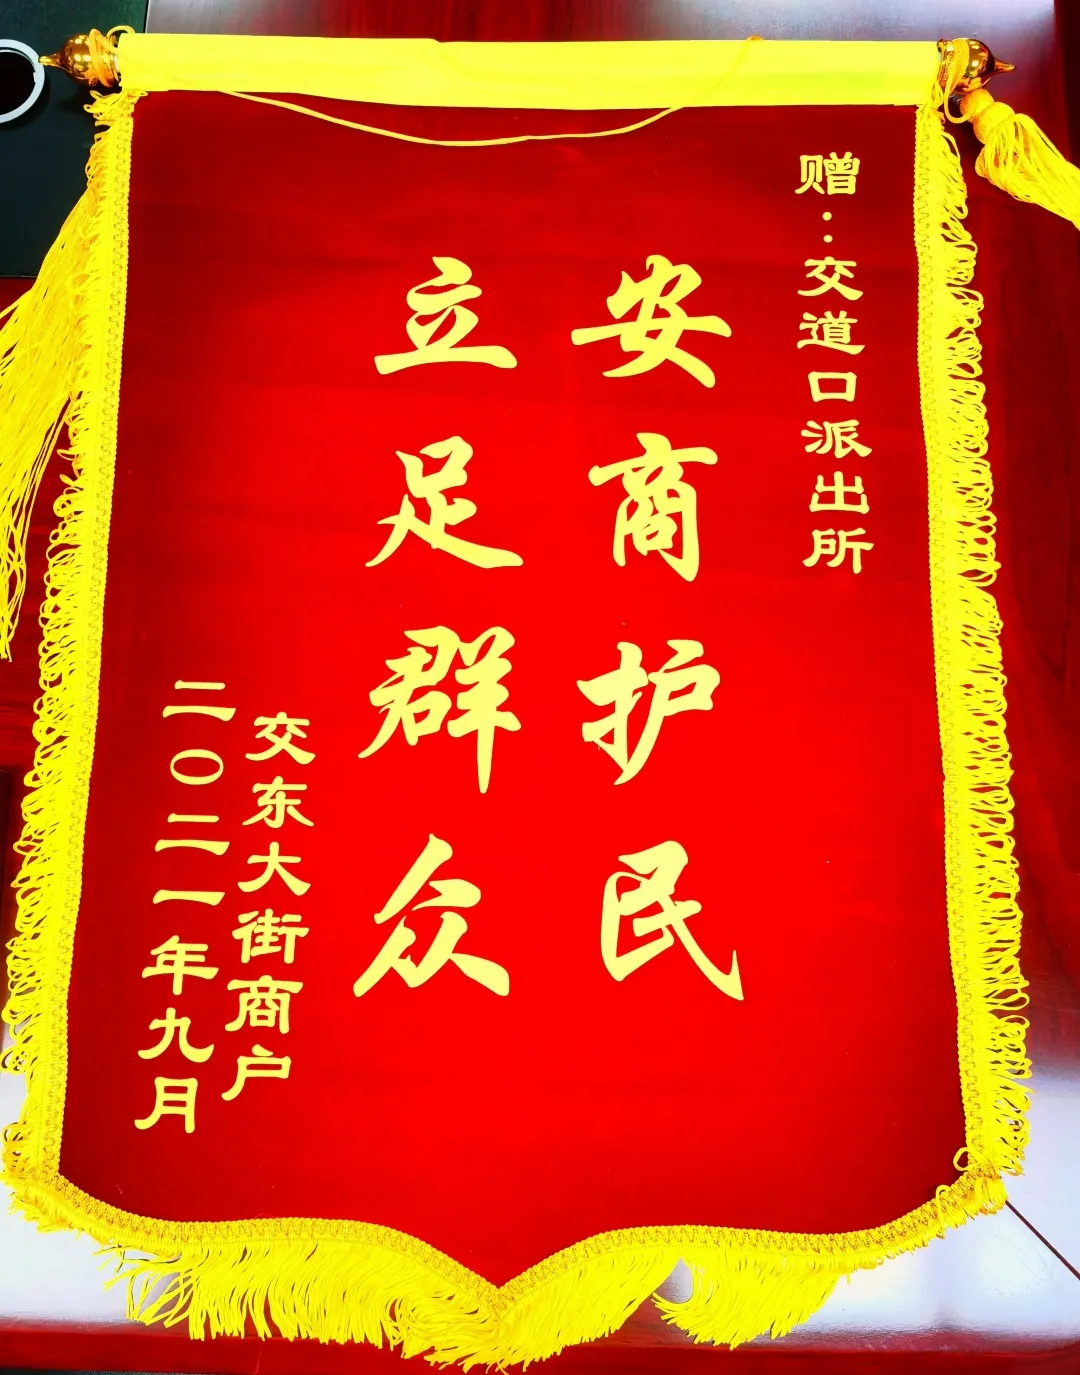 赠：交道口派出所
安商护民
立足群众
交东大街商户
二〇二一年九月